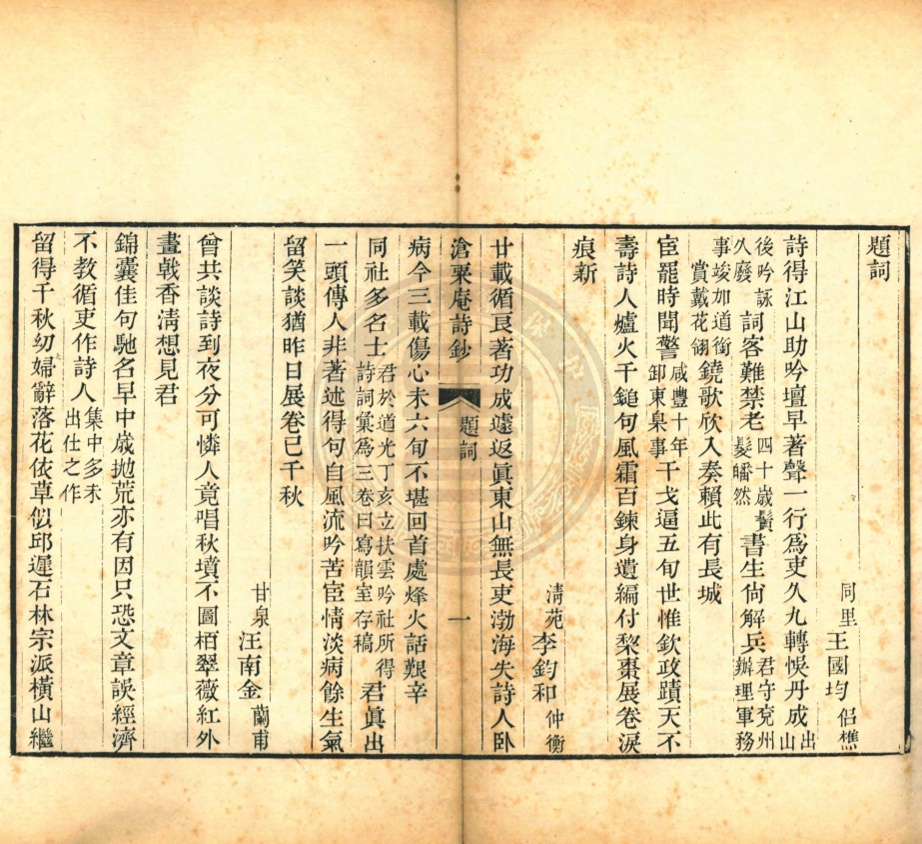 題詞
同里王國均侶樵
詩得江山助吟壇早著聲一行爲吏久九轉悞丹成出山
後吟詠久廢詞客難禁老四十歲鬢髮皤然書生尙解兵君守兗州辦理軍務
事竣加道銜賞戴花翎鐃歌欣入奏賴此有長城
宦罷時聞警咸豐十年卸東臬事干戈逼五旬世惟欽政蹟天不
壽詩人爐火千鎚句風霜百鍊身遺編付棃棗展卷淚
痕新
淸苑李鈞和仲衡
廿載循良著功成遽返眞東山無長吏渤海失詩人卧
滄粟庵詩鈔 題詞 一
病今三載傷心未六旬不堪回首處烽火話艱辛
同社多名士君於道光丁亥立扶雲吟社所得詩詞彙爲三卷曰寫韻室存稿君眞出
一頭傳人非著述得句自風流吟苦宦情淡病餘生氣
留笑談猶昨日展卷已千秋
甘泉汪南金蘭甫
曾共談詩到夜分可憐人竟唱秋墳不圖栢翠薇紅外
畫戟香淸想見君
錦囊佳句馳名早中歲拋荒亦有因只恐文章誤經濟
不教循吏作詩人集中多未出仕之作
留得千秋幼婦辭落花依草似邱遲石林宗派橫山繼